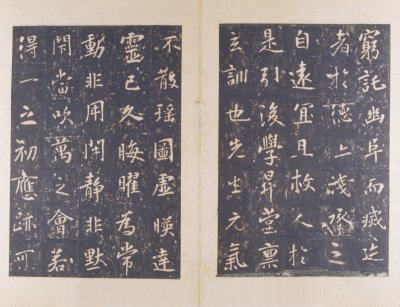 窮託幽阜而藏迹
者於德上或承之
自遠宜且救人於
是引後學昇堂稟
玄訓也先生元氣
不散瑶圖虛暎達
靈已久晦曜為常
動非用開靜非默
閇當吹萬之會若
得一之初應跡可